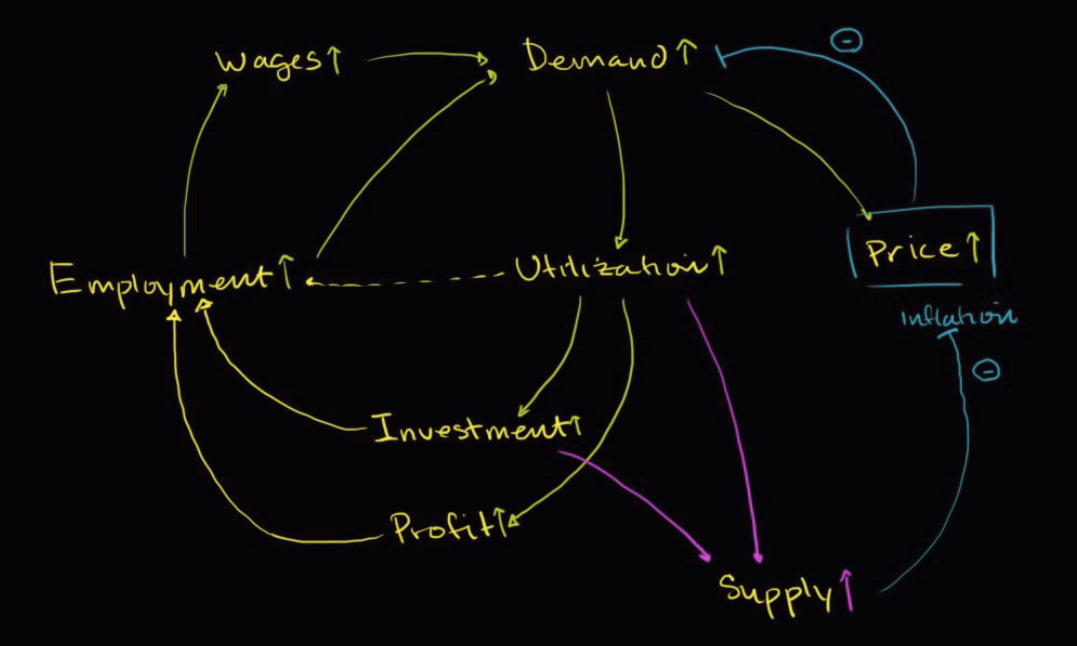 Wages↑
Demand↑
-
Employment↑
Utilization↑
Price↑
inflation
-
Investment↑
Profit↑
Supply↑